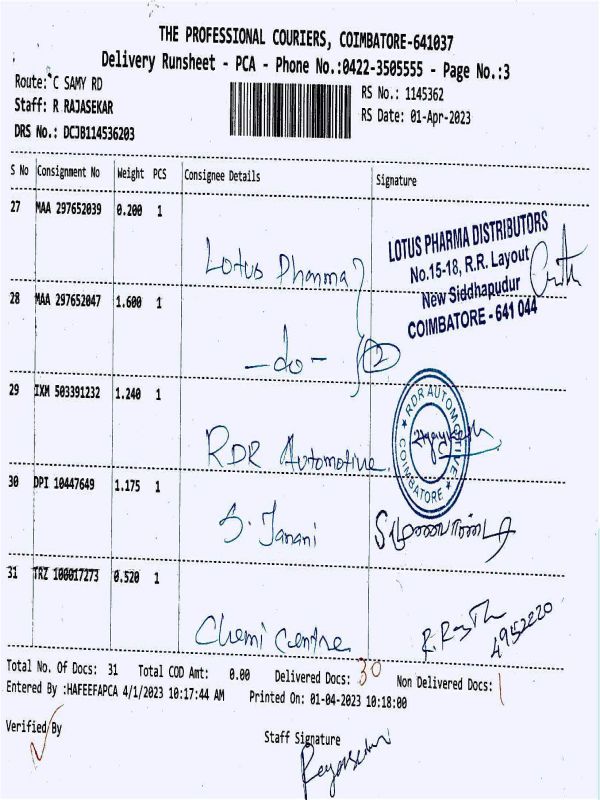 THE PROFESSIONAL COURIERS, COIMBATORE-641037
Delivery Runsheet - PCA - Phone No.:0422-3505555 - Page No.:3
Route: C SAMY RD
RS No.: 1145362
Staff: R RAJASEKAR
RS Date: 01-Apr-2023
DRS No.: DCJB114536203
S No Consignment No Weight PCS Consignee Details Signature
27 MAA 297652039 0.200 1
Lotus Pharma
LOTUS PHARMA DISTRIBUTORS
No.15-18, R.R. Layout
New Siddhapudur
COIMBATORE - 641 044
28 MAA 297652047 1.600 1
-do- 2
29 IXM 503391232 1.240 1
RDR Automotive
RDR AUTOMOTIVE
COIMBATORE
30 DPI 10447649 1.175 1
S. Janani
31 TRZ 100017273 0.520 1
Chemi Centre
Total No. Of Docs: 31 Total COD Amt: 0.00 Delivered Docs: 30 Non Delivered Docs: 1
Entered By :HAFEEFAPCA 4/1/2023 10:17:44 AM Printed On: 01-04-2023 10:18:00
Verified By
Staff Signature